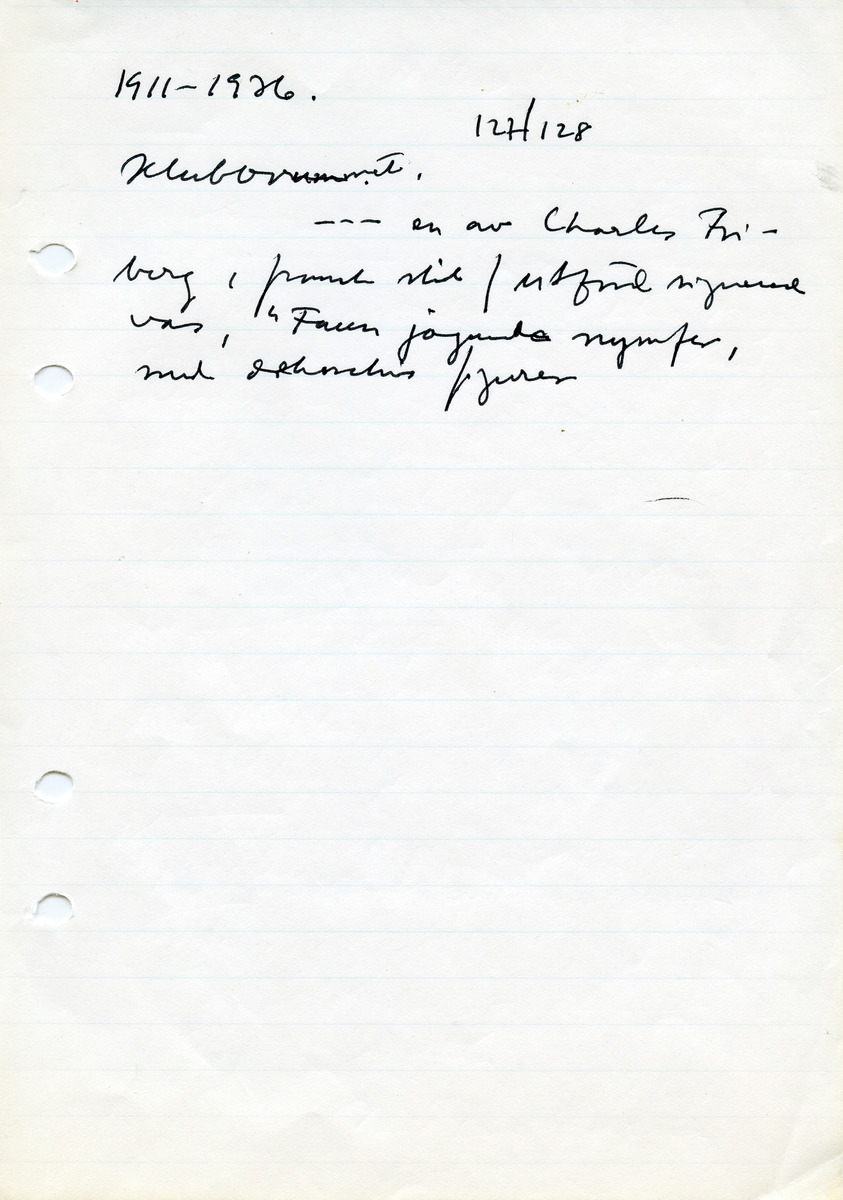 1911-1926.
127/128
Klubbrummet.
--- en av Charles Fri-
berg i fransk stil / utförd signerad
vas, "Faun jagande nymfer,
med figurer